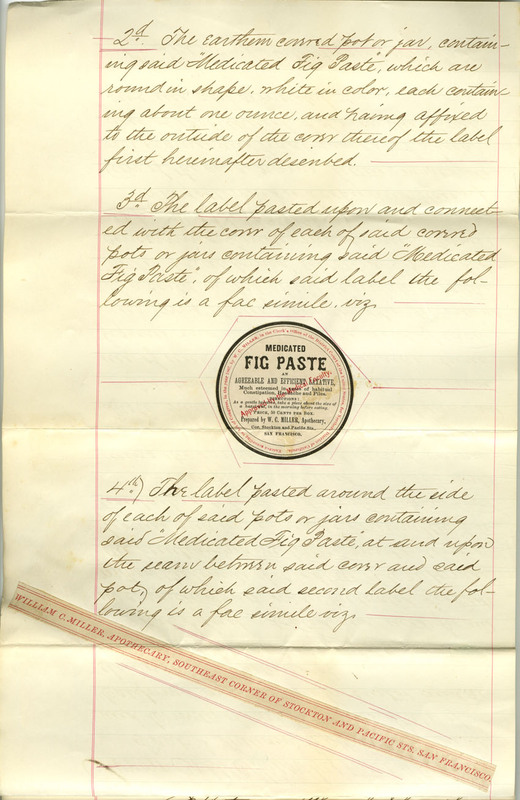 2d. The earthern covered pot or jar, contain-
ing said "Medicated Fig Paste", which are
round in shape, white in color, each contain-
ing about one ounce, and having affixed
to the outside of the cover thereof the label
first hereinafter described.
3d. The label pasted upon and connect-
ed with the cover of each of said covered
pots or jars containing said "Medicated
Fig Paste", of which said label the fol-
lowing is a fac simile. viz,
MEDICATED
FIG PASTE
AN
AGREEABLE AND EFFICIENT LAXATIVE,
Much esteemed in cases of habitual
Constipation, Headache and Piles.
DIRECTIONS:
As a gentle laxative, take a piece about the size of
a hazel nut, in the morning before eating.
PRICE, 50 CENTS PER BOX.
Prepared by W. C. MILLER, Apothecary,
Cor. Stockton and Pacific Sts.
SAN FRANCISCO.
4th) The label pasted around the side
of each of said pots or jars containing
said "Medicated Fig Paste", at and upon
the seam between said cover and said
pot, of which said second label the fol-
lowing is a fac simile viz,
WILLIAM C. MILLER, APOTHECARY, SOUTHEAST CORNER OF STOCKTON AND PACIFIC STS. SAN FRANCISCO.